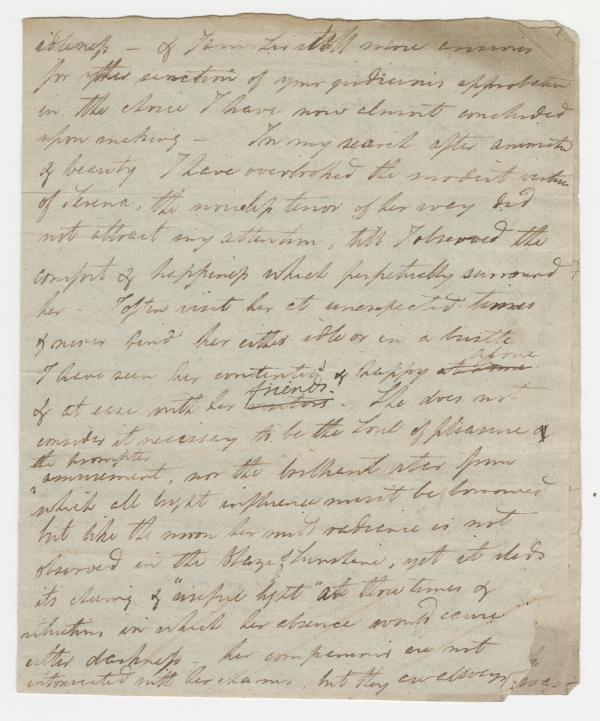 idleness — & I am still more anxious
for the sanction of your judicious approbation
in the choice I have now almost concluded
upon making — In my search after
& beauty I have overlooked the modest virtues
of Serena, the noiseless tenor of her way did
not attract my attention, till I observed the
comfort & happiness which perpetually surround
her — I often visit her at unexpected times
& never find her either idle or in a bustle
I have seen her contented & happy at home alone
& at ease with her visitors friends. She does not
consider it necessary to be the soul of pleasure &
the prompter
amusement, nor the brilliant star from
which all bright influence must be borrowed
but like the moon her mild radiance is not
observed in the Blaze of Sunshine, yet it sheds
its cheering & "useful light" at those times &
situations in which her absence would cause
utter darkness — her companions are not
intoxicated with her charms, but they are always